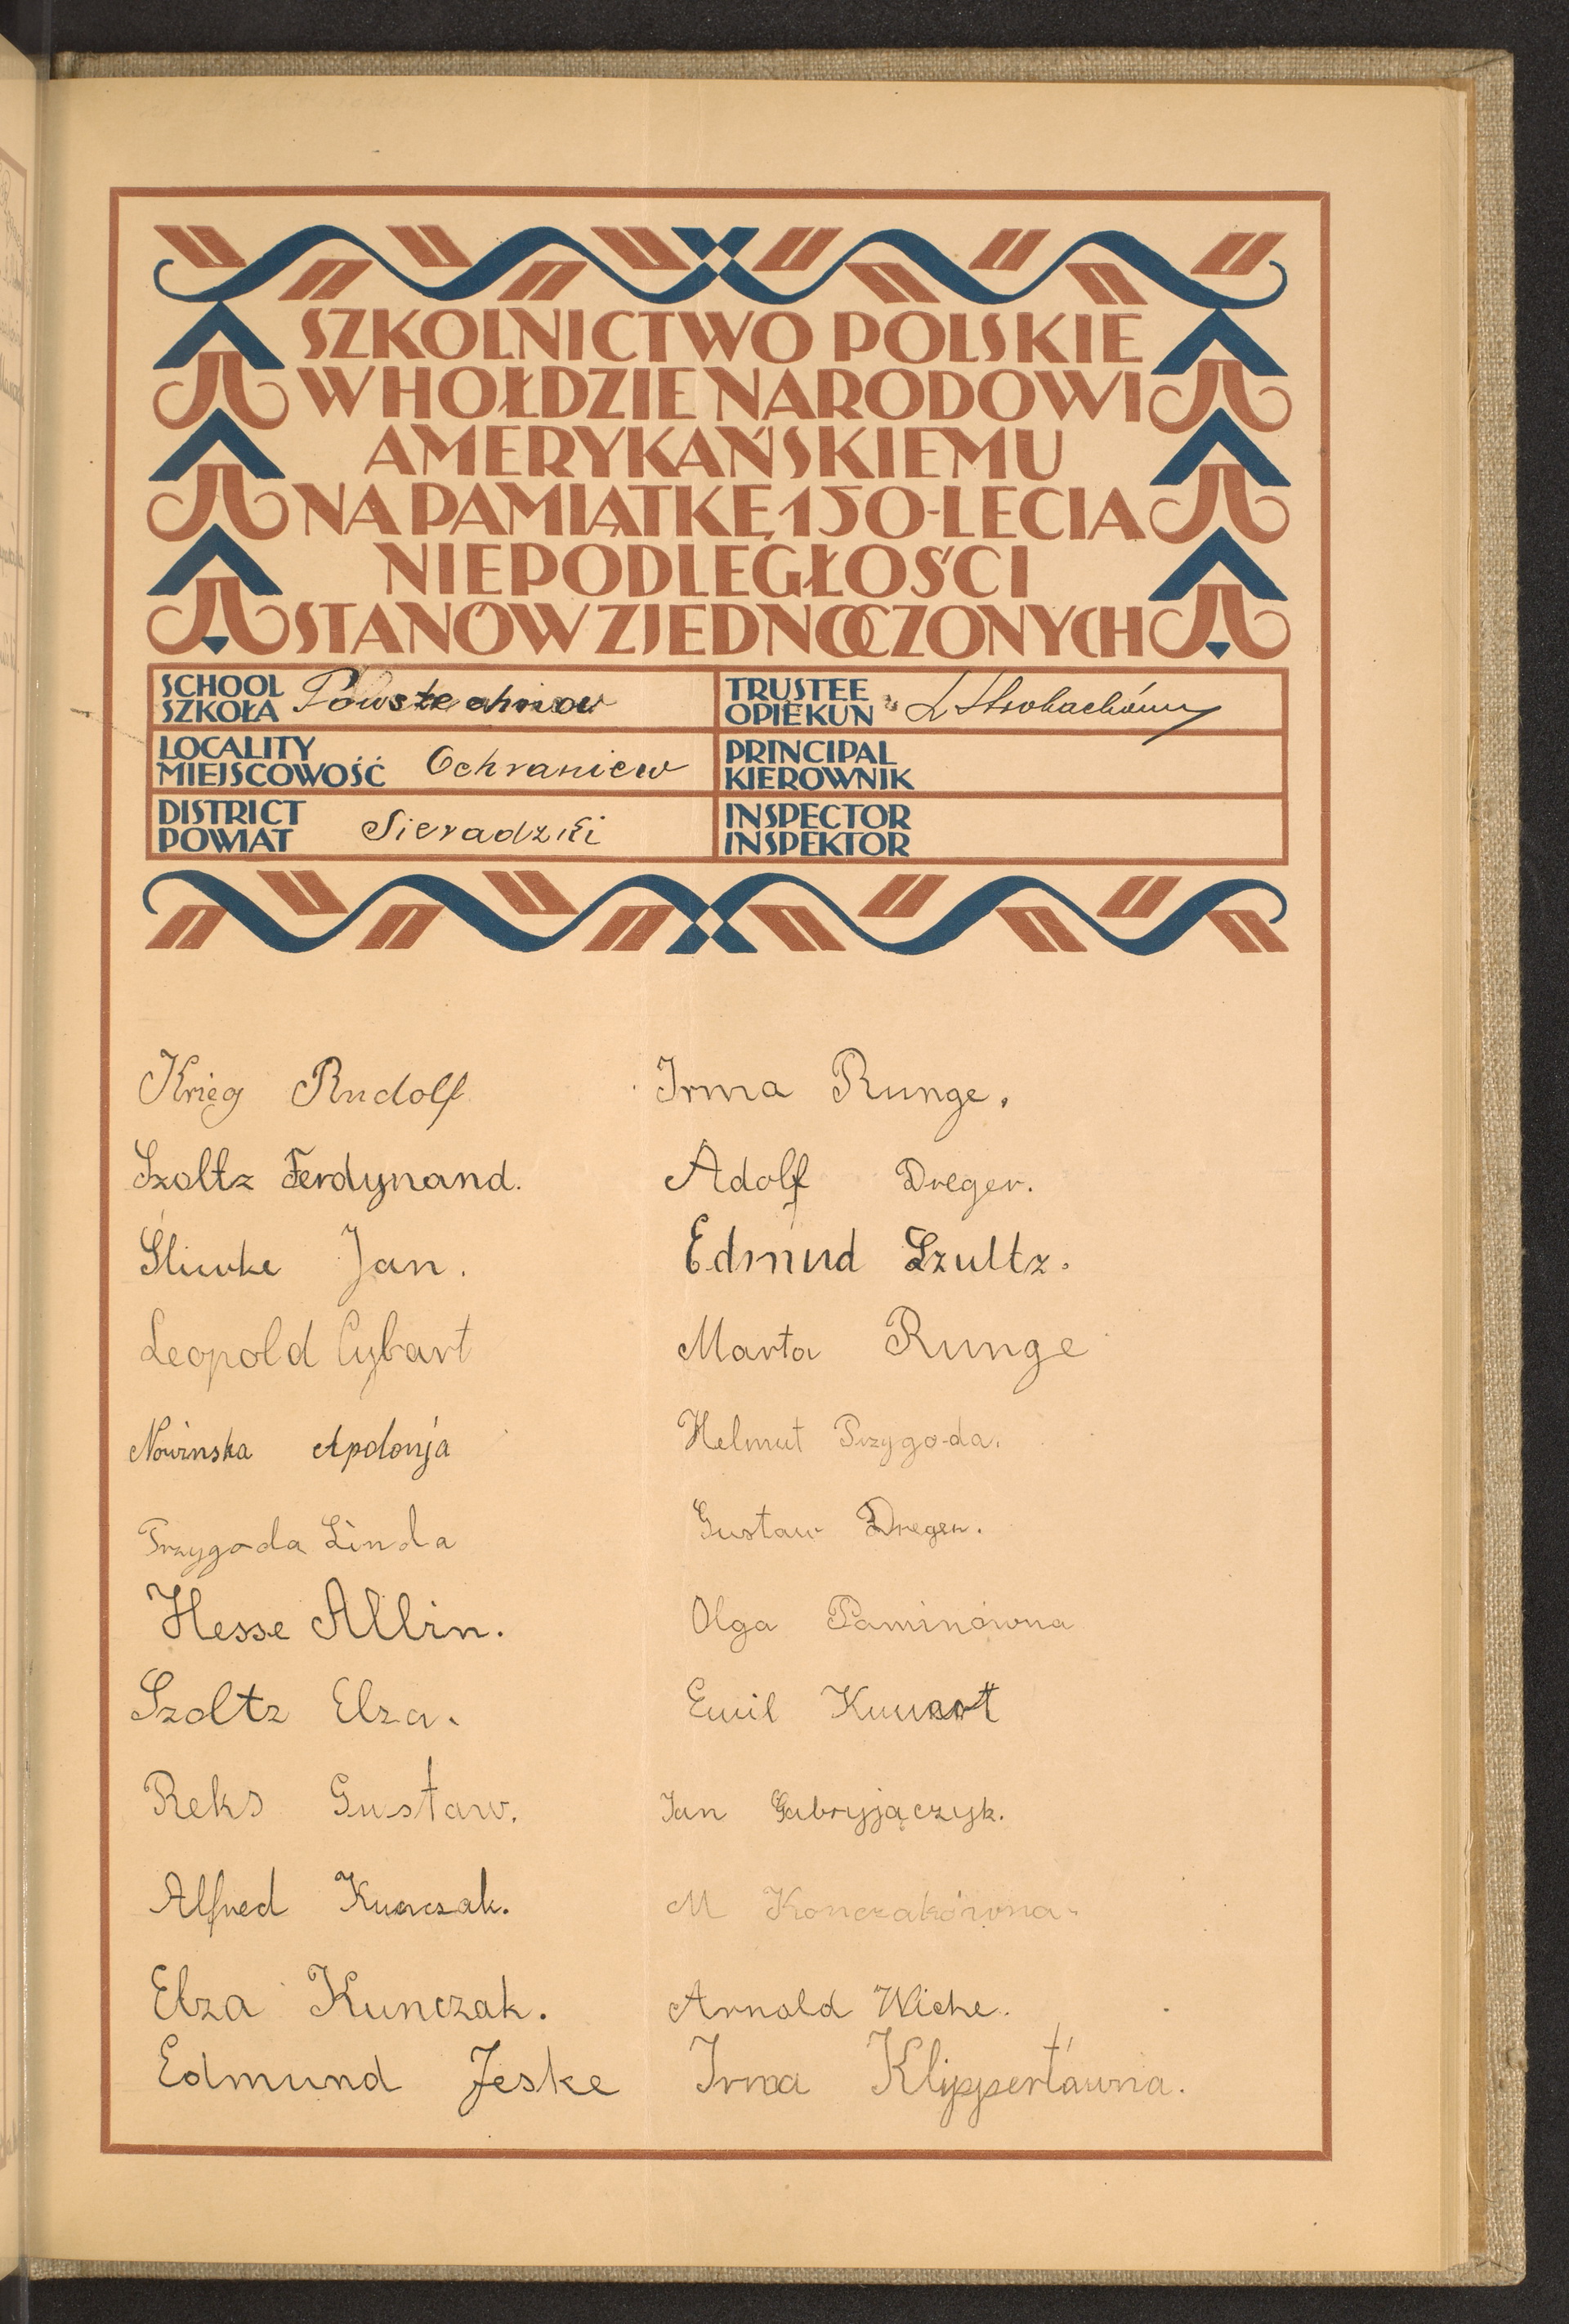 SZKOLNICTWO POLSKIE
W HOŁDZIE NARODOWI
AMERYKAŃSKIEMU
NA PAMIĄTKĘ 150-LECIA
NIEPODLEGŁOŚCI
STANÓW ZJEDNOCZONYCH
SCHOOL
SZKOŁA
TRUSTEE
OPIEKUN
LOCALITY
MIEJSCOWOŚĆ Ochraniew
PRINCIPAL
KIEROWNIK
DISTRICT
POWIAT Sieradzki
INSPECTOR
INSPEKTOR
Krieg Rudolf
Szoltz Ferdynand.
Śliwke Jan.
Leopold Cybart
Nowinska Apolonja
Przygoda Linda
Hesse Albin.
Szoltz Elza.
Reks Gustaw.
Alfred Kunczak.
Elza Kunczak.
Edmund Jeske
Irma Runge.
Adolf Dreger.
Edmud Szultz.
Marta Runge
Helmut Przygoda.
Gustaw Dreger.
Olga Paminówna
Emil
Jan Gabryjączyk.
M Konczakówna.
Arnold Wiche.
Irma Klippertówna.